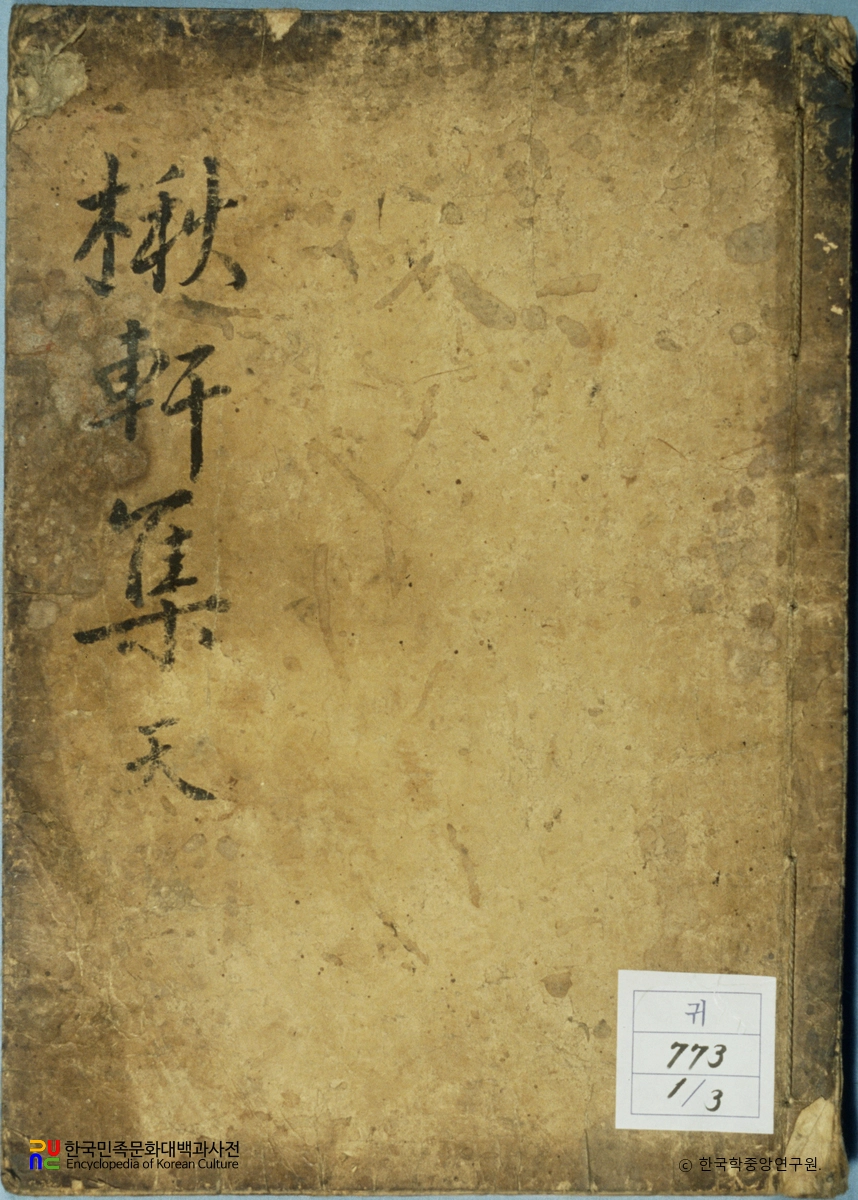 楸軒集 天
귀
773
1/3
한국민족문화대백과사전
Encyclopedia of Korean Culture
© 한국학중앙연구원.